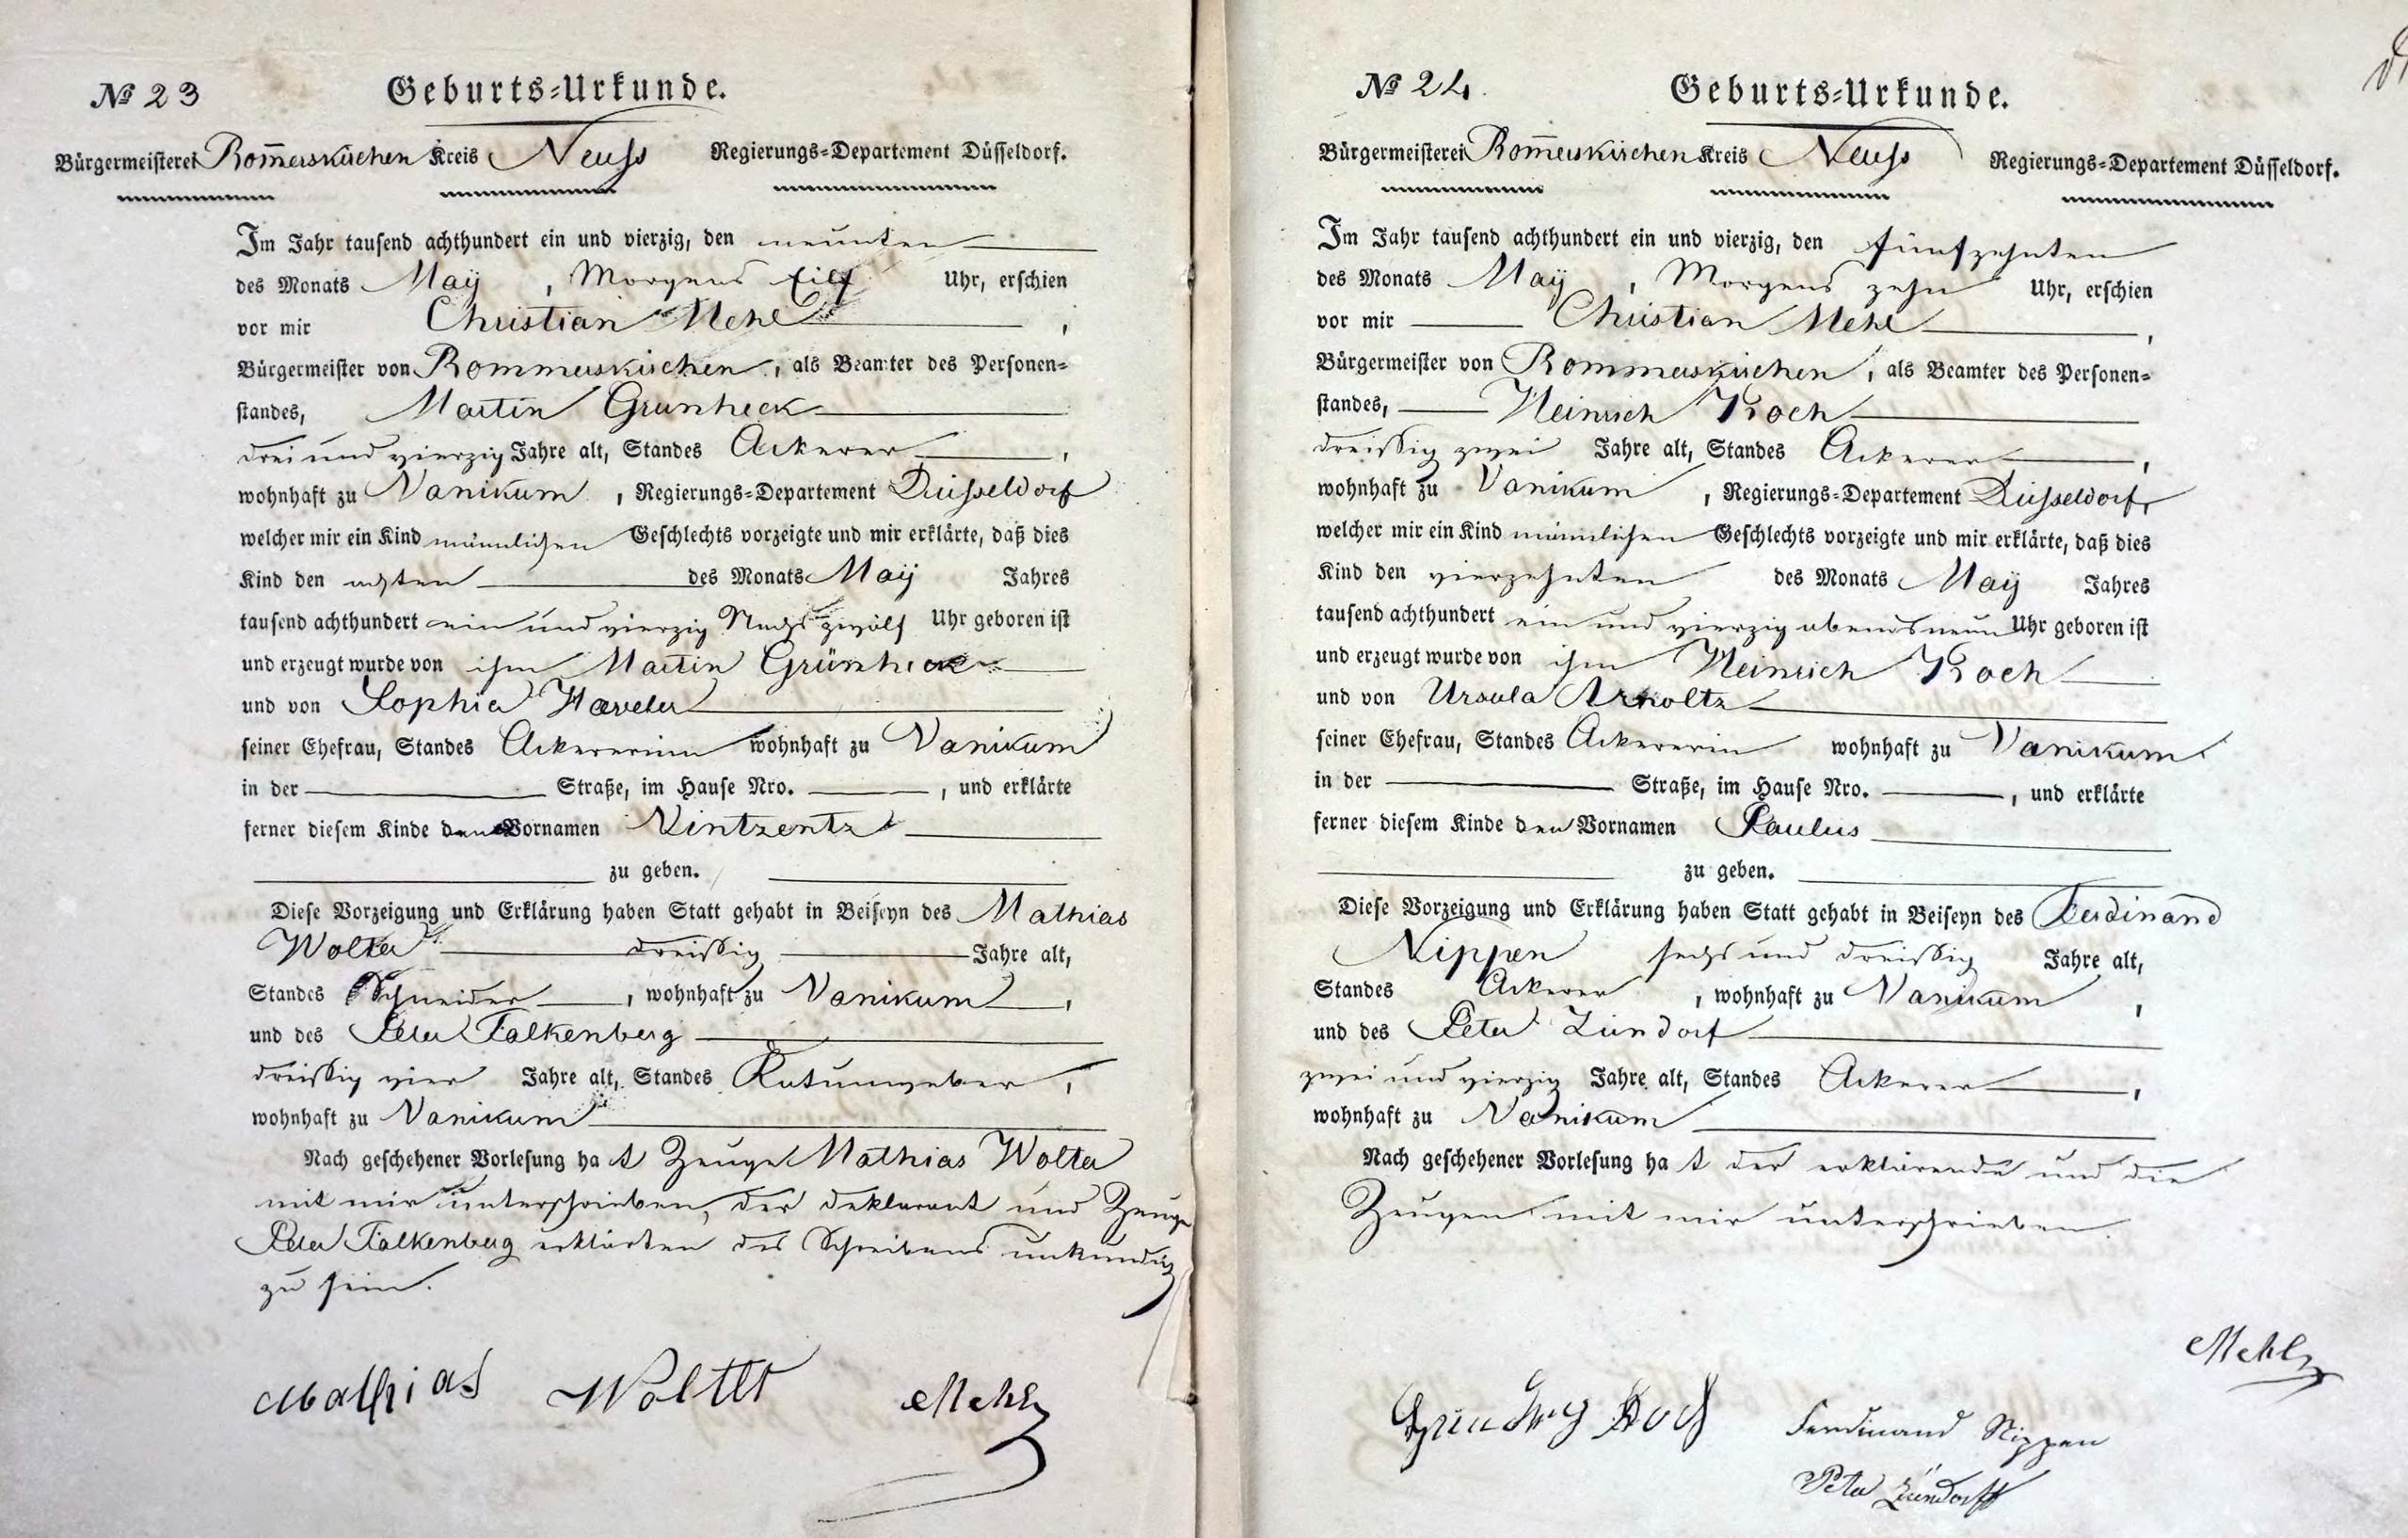 № 23 Geburts-Urkunde.
Bürgermeisterei Rom̅erskirchen Kreis Neuss Regierungs-Departement Düsseldorf.
Im Jahr tausend achthundert ein und vierzig, den neunten
des Monats Maÿ, Morgens Eilf Uhr, erschien
vor mir Christian Mehl,
Bürgermeister von Rommerskirchen, als Beamter des Personen-
standes, Martin Grunheck
drei und vierzig Jahre alt, Standes Ackerer,
wohnhaft zu Vanikum, Regierungs-Departement Düsseldorf
welcher mir ein Kind männlichen Geschlechts vorzeigte und mir erklärte, daß dies
Kind den achten des Monats Maÿ Jahres
tausend achthundert ein und vierzig Nachts zwölf Uhr geboren ist
und erzeugt wurde von ihm Martin Grünheck
und von Sophia Haeveler
seiner Ehefrau, Standes Ackererinn wohnhaft zu Vanikum
in der Straße, im Hause Nro. , und erklärte
ferner diesem Kinde den Vornamen Vintzentz
zu geben.
Diese Vorzeigung und Erklärung haben Statt gehabt in Beiseyn des Mathias
Wolter dreißig Jahre alt,
Standes Schneider, wohnhaft zu Vanikum,
und des Peter Falkenberg
dreißig vier Jahre alt, Standes Katunweber,
wohnhaft zu Vanikum
Nach geschehener Vorlesung hat Zeuge Mathias Wolter
mit mir unterschrieben, der deklarant und Zeuge
Peter Falkenberg erklärten des Schreibens unkundig
zu sein.
Mathias Wolter Mehl
№ 24. Geburts-Urkunde.
Bürgermeisterei Rom̅erskirchen Kreis Neuss Regierungs-Departement Düsseldorf.
Im Jahr tausend achthundert ein und vierzig, den fünfzehnten
des Monats Maÿ, Morgens zehn Uhr, erschien
vor mir Christian Mehl,
Bürgermeister von Rommerskirchen, als Beamter des Personen-
standes, Heinrich Koch
dreißig zwei Jahre alt, Standes Ackerer,
wohnhaft zu Vanikum, Regierungs-Departement Düsseldorf,
welcher mir ein Kind männlichen Geschlechts vorzeigte und mir erklärte, daß dies
Kind den vierzehnten des Monats Maÿ Jahres
tausend achthundert ein und vierzig abends neun Uhr geboren ist
und erzeugt wurde von ihm Heinrich Koch
und von Ursula Arnoltz
seiner Ehefrau, Standes Ackererin wohnhaft zu Vanikum
in der Straße, im Hause Nro. , und erklärte
ferner diesem Kinde den Vornamen Paulus
zu geben.
Diese Vorzeigung und Erklärung haben Statt gehabt in Beiseyn des Ferdinand
Nippen sechs und dreißig Jahre alt,
Standes Ackerer, wohnhaft zu Vanikum,
und des Peter Zündorf
zwei und vierzig Jahre alt, Standes Ackerer,
wohnhaft zu Vanikum
Nach geschehener Vorlesung hat der erklärende und die
Zeugen mit mir unterschrieben.
Mehl
Koch Ferdinand Nippen
Peter Zündorff